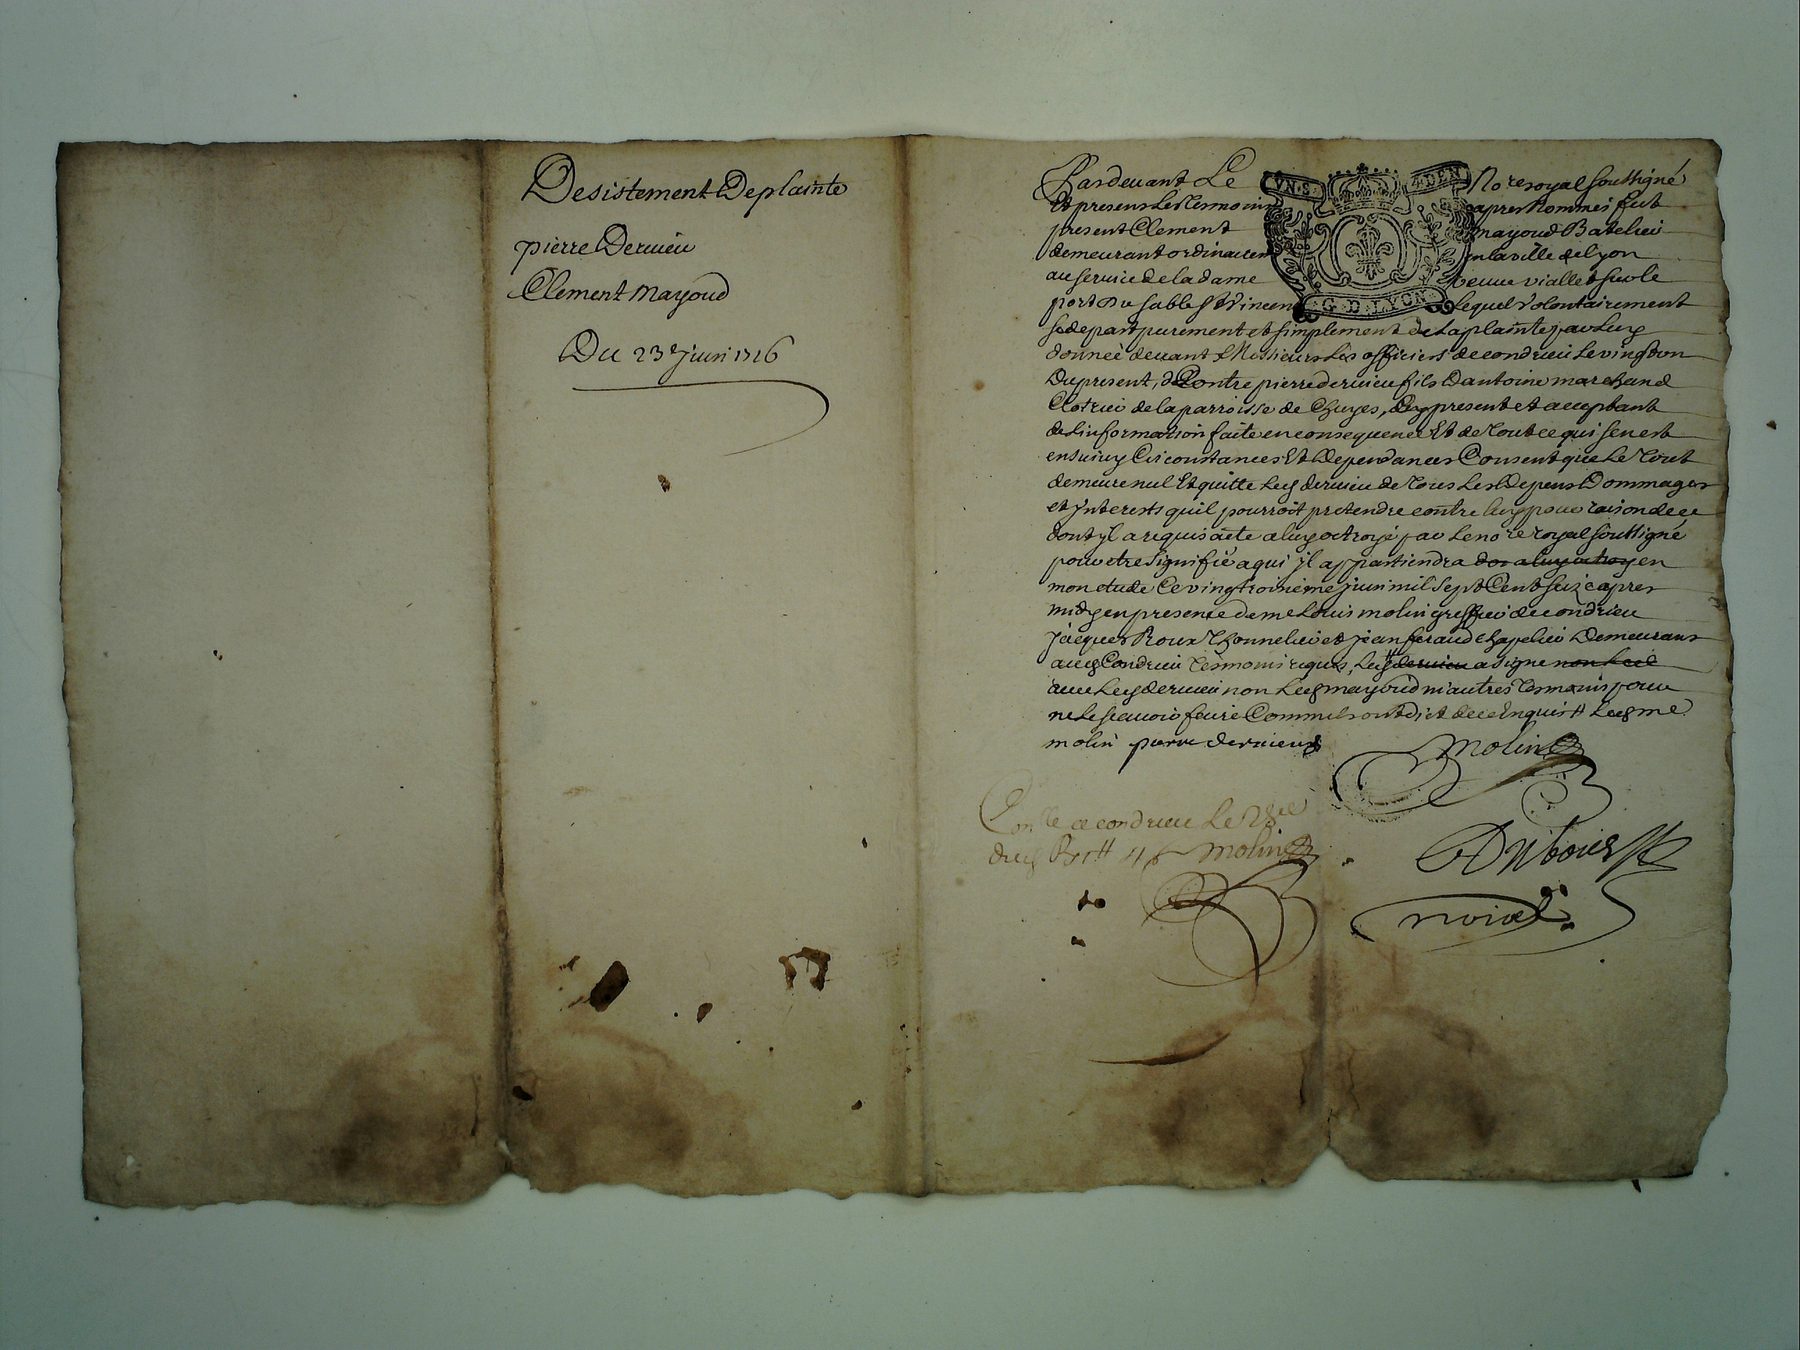 Desistement De plainte
pierre Dervieu
Clement mayoud
Du 23e juin 1716
Pardevant Le No re royal soussigné
Et presens Les Tesmoins apres nommes fut
present Clement mayoud Batelier
demeurant ordinairem en la ville de Lyon
au service de la dame veuve viallet sur le
port Du sable St Vincent Lequel Volontairement
se depart purement et simplement de La plainte par Luy
donneé devant Messieurs Les officiers de condrieu Le vingt un
Du present, Contre pierre dervieu fils D antoine marchand
de la parroisse de Chuyes, present et aceptant
de L'information faite en consequence Et de Tout ce qui s'en est
ensuivy Circonstances Et Dependances Consent que Le Tout
demeure nul Et quitte Led dervieu de Tous Les Depens Dommages
et jnterests qu'il pourroit pretendre contre luy pour raison de ce
dont jl a requis acte a luy octroyé par Le no re royal soussigné
pour etre signifié a qui jl appartiendra en
mon etude Ce vingt troisieme juin mil sept Cent seize apres
midy en presence de me Louis molin greffier de condrieu
jacques Roux Thonnelier et jean feraud chapelier Demeurans
aud Condrieu Tesmoins requis, a signé
avec Led dervieu non Led mayoud ni autres Tesmoins pour
ne Le scavoir faire Comme ont dict de ce Enquis Led me
molin pierre dervieu
VN.S. 4.DEN
G.D.LYON
Molin
Conlle a condrieu Le
dud molin
Duboies